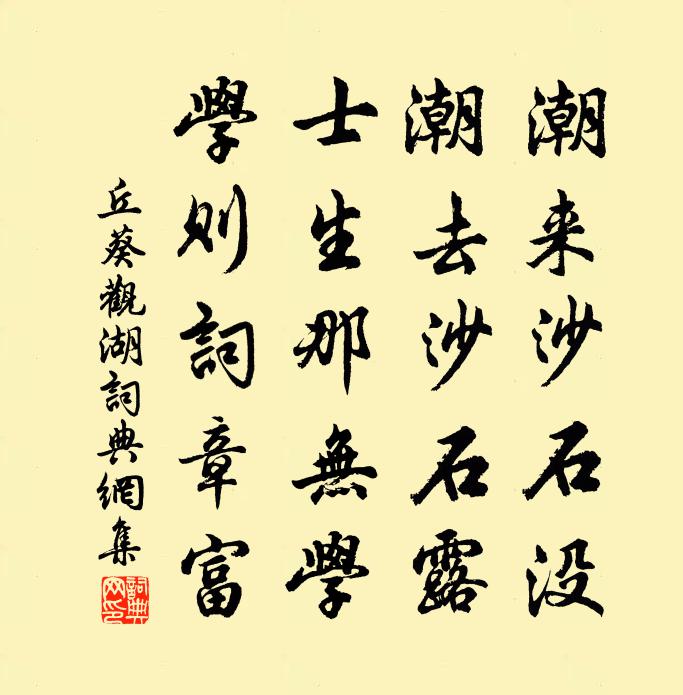 潮来沙石没
潮去沙石露
士生那無學
學則詞章富
丘葵觀湖詞典網集
詞典網印